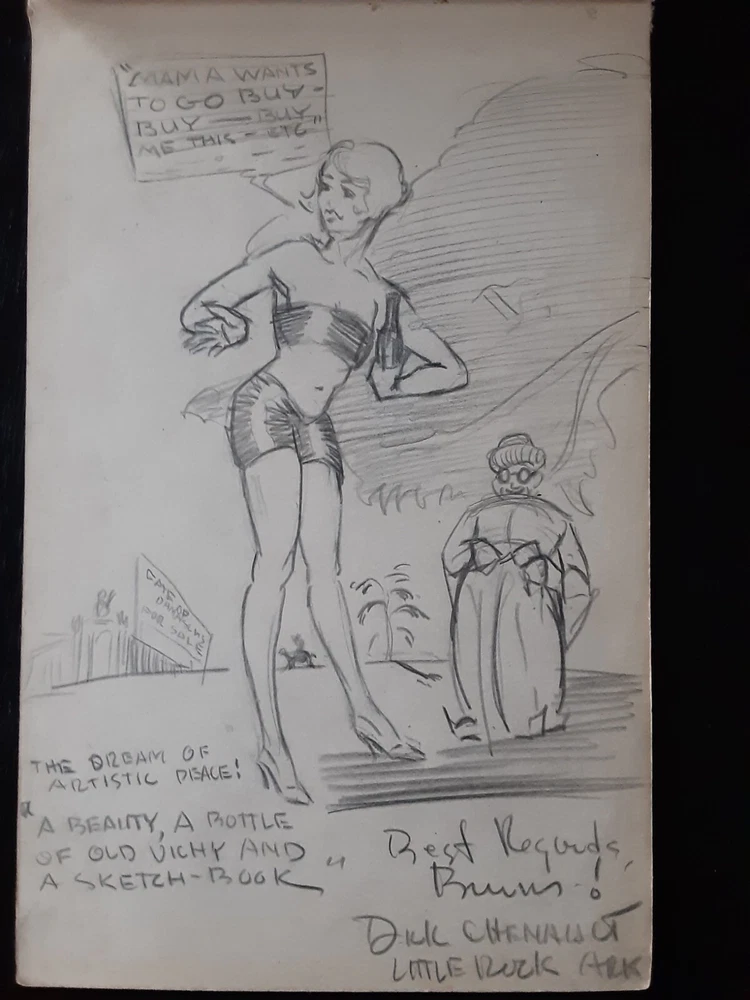 "MAMA WANTS
TO GO BUY -
BUY — BUY
ME THIS - ETC"
GATE OF
DAMASCUS
FOR SALE
THE DREAM OF
ARTISTIC PEACE!
"A BEAUTY, A BOTTLE
OF OLD VICHY AND
A SKETCH-BOOK"
Best Regards,
DICK CHENAULT
LITTLE ROCK ARK